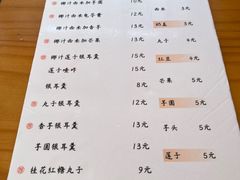 椰汁西米加芋圆 10元
椰汁西米龟苓膏 12元
椰汁西米加香芋 13元
椰汁西米加芒果 13元
椰汁莲子银耳羹 15元
莲子喳咋 15元
银耳羹 8元
丸子银耳羹 12元
香芋银耳羹 13元
芋圆银耳羹 13元
桂花红糖丸子 9元
西米 3元
奶豆 3元
丸子 4元
红豆 4元
芒果 5元
芋圆 5元
芋头 5元
莲子 5元